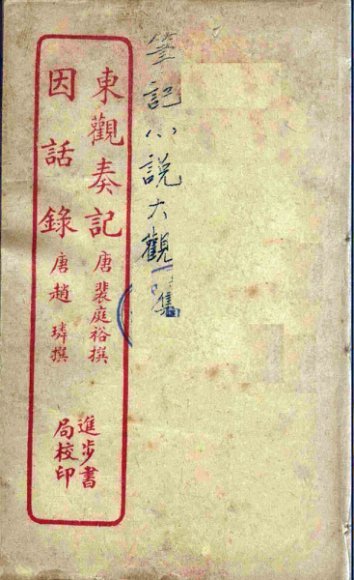 筆記小說大觀一集
東觀奏記 唐裴庭裕撰
因話錄 唐趙璘撰
進步書
局校印